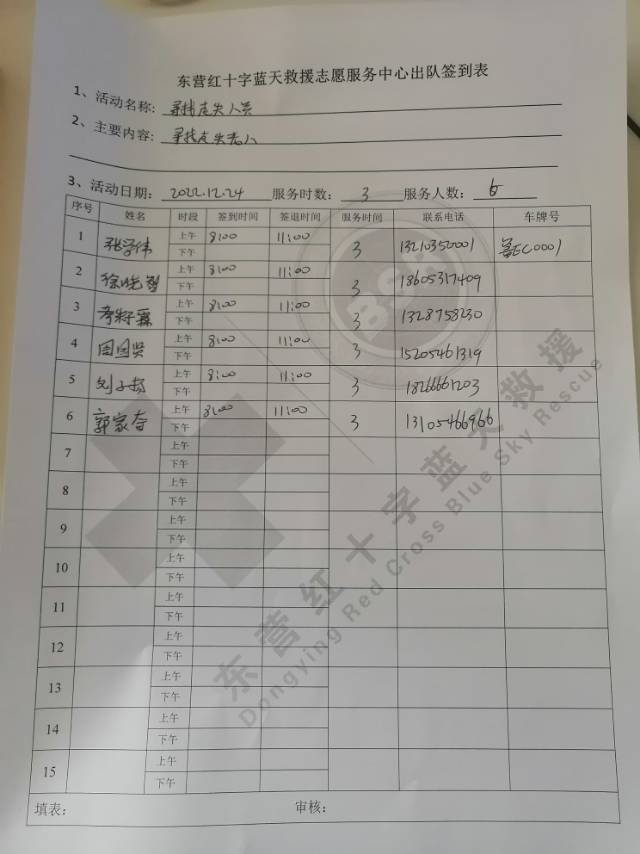 东营红十字蓝天救援志愿服务中心出队签到表
1、活动名称：寻找走失人员
2、主要内容：寻找走失老人
3、活动日期：2022.12.24 服务时数：3 服务人数：6
序号 姓名 时段 签到时间 签退时间 服务时间 联系电话 车牌号
1 张学伟 上午 8:00 11:00 3 13210352001 鲁EC0001
下午
2 徐晓 上午 8:00 11:00 3 18605317409
下午
3 上午 8:00 11:00 3 1328758230
下午
4 周国贤 上午 8:00 11:00 3 15205461319
下午
5 刘子扬 上午 8:00 11:00 3 18266661203
下午
6 郭家奇 上午 8:00 11:00 3 13105466966
下午
7 上午
下午
8 上午
下午
9 上午
下午
10 上午
下午
11 上午
下午
12 上午
下午
13 上午
下午
14 上午
下午
15 上午
下午
填表： 审核：
东营红十字蓝天救援
Dongying Red Cross Blue Sky Rescue
BSR